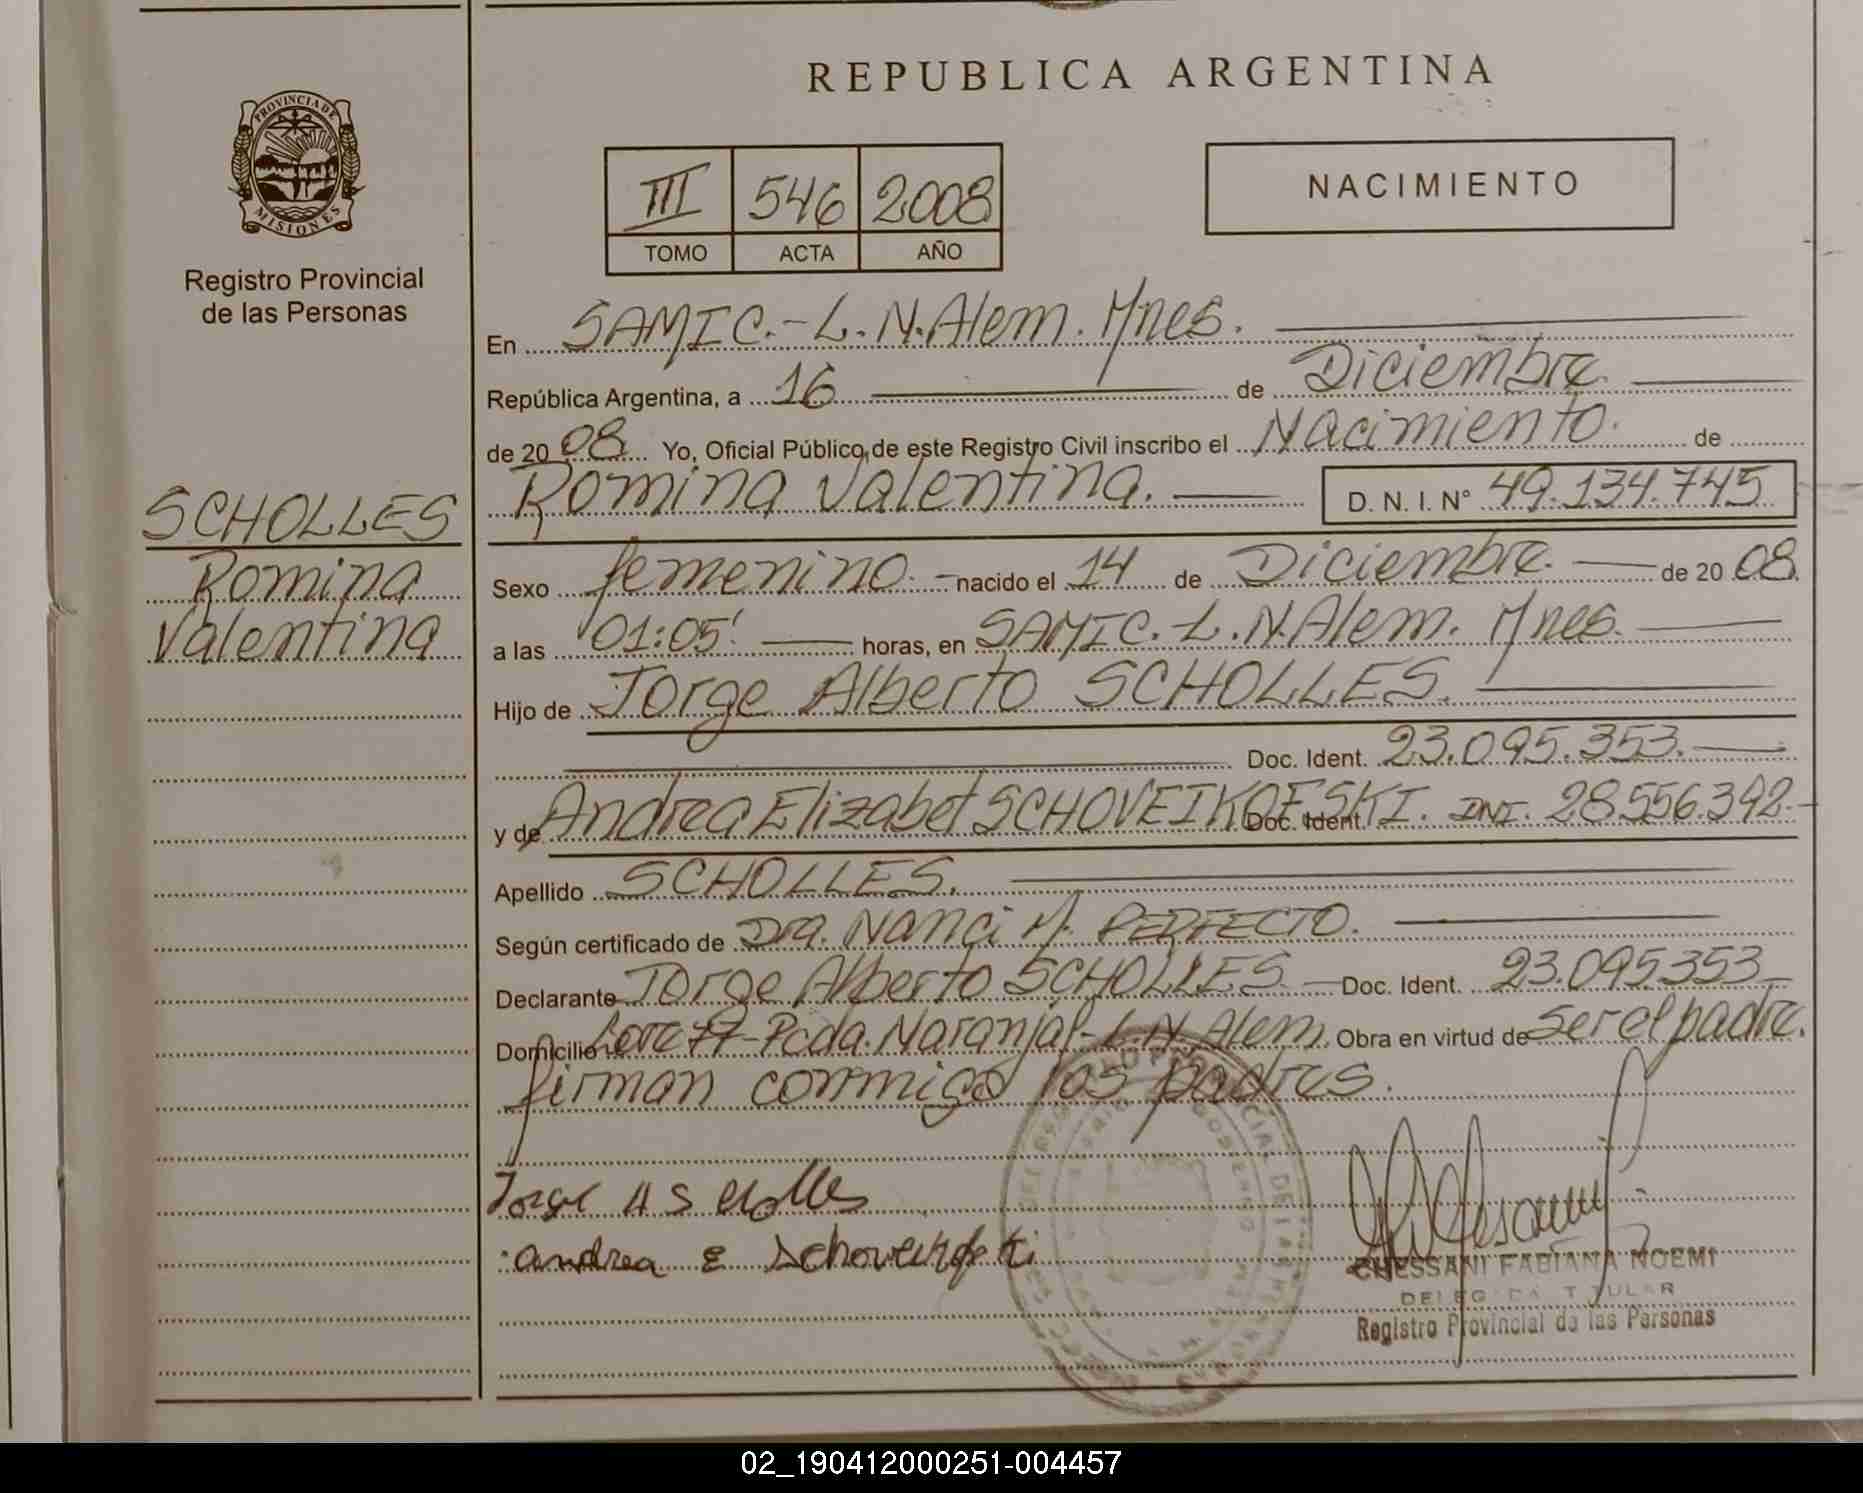 REPUBLICA ARGENTINA
PROVINCIA DE
MISIONES
Registro Provincial
de las Personas
III 546 2008
TOMO ACTA AÑO
NACIMIENTO
En SAMIC.-L.N.Alem. Mnes.
República Argentina, a 16 de Diciembre.
de 20 08 Yo, Oficial Público de este Registro Civil inscribo el Nacimiento. de
Romina Valentina. D. N. I. N° 49.134.745
SCHOLLES
Romina
Valentina
Sexo femenino.- nacido el 14 de Diciembre. de 20 08.
a las 01:05' horas, en SAMIC.-L.N.Alem. Mnes.
Hijo de Jorge Alberto SCHOLLES.
Doc. Ident. 23.095.353.
y de Andrea Elizabet SCHOVEIKOFSKI. Doc. Ident. DNI. 28.556.392-
Apellido SCHOLLES.
Según certificado de Dra. Nanci M. PERFECTO.
Declarante Jorge Alberto SCHOLLES - Doc. Ident. 23.095353
Domicilio -Pcda. Naranjal-L.N.Alem. Obra en virtud de ser el padre.
firman conmigo los padres.
Jorge A Scholles
andrea E
CHESSANI FABIANA NOEMI
DELEGADA TITULAR
Registro Provincial de las Personas
02_190412000251-004457